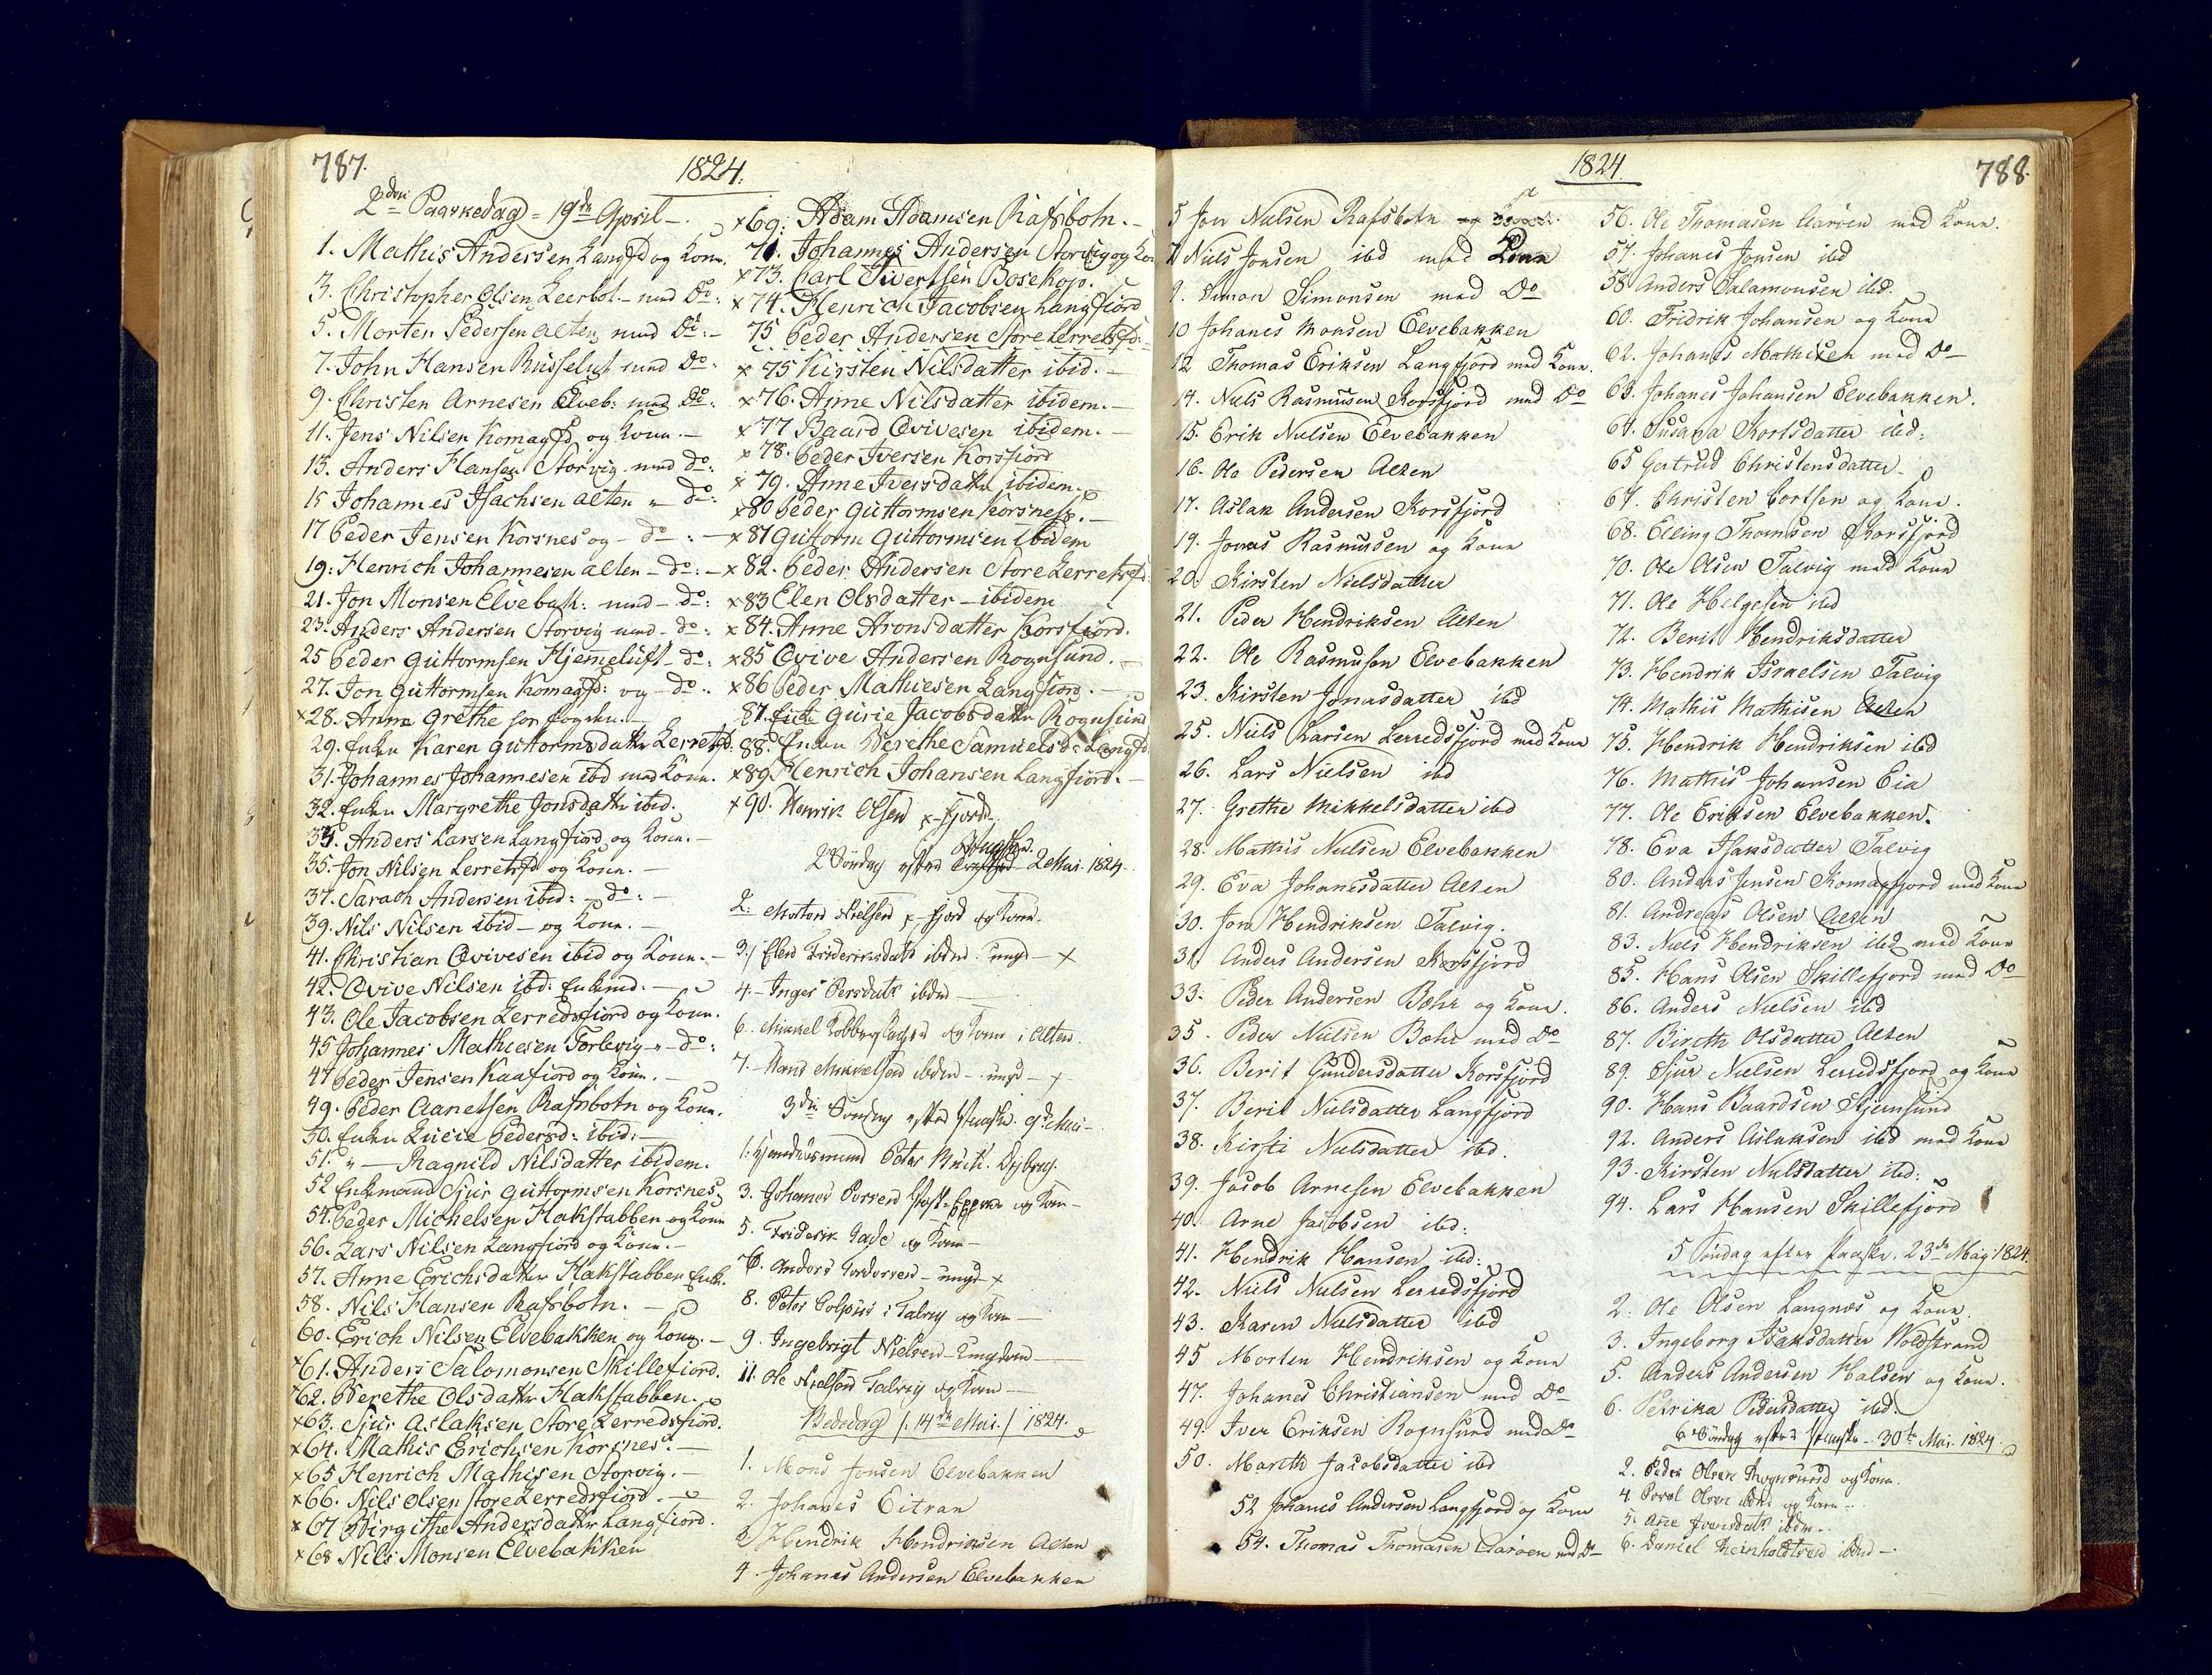 787.
1824.
2den Paaskedag = 19de April -.
1. Mathis Andersen Langfd og Kone.
3. Christopher Olsen Leerbot. - med Do:
5. Morten Pedersen Alten, med Do: -
7. John Hansen Russeluft med Do:
9. Christen Arnesen Elveb: med Do:
11. Jens Nilsen Komagfd og Kone. -
13. Anders Hansen Storvig med do:
15 Johannes Isachsen Alten " do:
17 Peder Jensen Korsnes og - do : -
19: Henrich Johannesen Alten - do: -
21. Jon Monsen Elvebak: med - do:
23. Anders Andersen Storvig med - do:
25 Peder Guttormsen Hjemmeluft - do:
27. Jon Guttormsen Komagfd: og - do:
x28. Anna Grethe hos fogden. -
29. Enken Karen Guttormsdatter Lerretsfd.
31. Johannes Johannesen ibd med Kone.
32. Enken Margrethe Jonsdatter ibid.
33. Anders Larsen Langfiord og Kone. -
35. Jon Nilsen Lerretsfd og Kone. -
37. Sarach Andersen ibid: - do: -
39. Nils Nilsen ibid - og Kone. -
41. Christian Qvivesen ibid og Kone. -
42. Qvive Nilsen ibd: Enkemd. -
43. Ole Jacobsen Lerredsfiord og Kone.
45 Johannes Mathiesen Torbevig " - do:
47 Peder Jensen Kaafiord og Kone. -
49. Peder Aanetsen Rafsbotn og Kone.
50. Enken Lucie Pedersd: ibid: -
51. " - Ragnild Nilsdatter ibidem.
52 Enkemand Sjur Guttormsen Korsnes,
54. Peder Michelsen Hakstabben og Kone
56. Lars Nilsen Langfiord og Kone. -
57. Anne Erichsdatter Hakstabben Enk.
58. Nils Hansen Rafsbotn. -
60. Erich Nilsen Elvebakken og Kone. -
x61. Anders Salomonsen Skillefiord.
x62. Berethe Olsdatter Hakstabben.
x63. Sjur Aslaksen Store Lerredsfiord.
x64. Mathis Erichsen Korsnes. -
x65 Henrich Mathisen Storvig. -
x66. Nils Olsen Store Lerredsfiord. -
x67 Birgithe Andersdatter Langfiord.
x68 Nils Monsen Elvebakken
x69: Adam Adamsen Rafsbotn. -
71. Johannes Andersen Storvig og Ko
x73. Carl Sivertsen Bosekop.
x74. Henrich Jacobsen Langfiord
75 Peder Andersen Store Lerretsfd: -
x75 Kirsten Nilsdatter ibid. -
x76. Anne Nilsdatter ibidem. -
x77 Baard Qvivesen ibidem. -
x78. Peder Iversen Korsfiord
x79. Anne Iversdatter ibidem. -
x80 Peder Guttormsen Korsness. -
x81 Guttorm Guttormsen ibidem
x82. Peder Andersen Store Lerretsfd:
x83 Elen Olsdatter - ibidem
x84. Anne Aronsdatter Korsfiord.
x85 Qvive Andersen Rognsund. -
x86 Peder Mathiesen Langfiord. -
87. Enke Gurie Jacobsdatter Rognsund
88. Enken Berethe Samuelsd: Langfd
x89 Henrich Johansen Langfiord. -
x90. Henrik Olsen x-fjord -
2 Søndag efter Paaske. 2 Mai. 1824.
2: Morten Nielsen x-fjord og Kone.
3./ Elen Friderichsdatr ibdm ungd - x
4. - Inger Persdatr ibdm -
6. Mikkel og Kone i Alten.
7. Hans Mikkelsen ibdem - ungd - x
3die Søndag efter Paaske. 9de Mai -
1. Peter Buck.
3. Johannes og Kone -
5. Friderik Gade og Kone -
6. Anders - ungd x
8. Peter i Talvig og Kone -
9. Ingebrigt Nielsen - Ungdom -
11. Ole Nielsen Talvig og Kone -
Bededag /: 14de Mai :/ 1824.
1. Mons Jonsen Elvebakken
2. Johanes Eitran
3 Hendrik Hendriksen Alten
4. Johanes Andersen Elvebakken
1824
788.
5 Jon Nielsen Rafsbotn
7 Niels Jonsen ibd med Kone
9. Simon Simonsen med Do
10 Johanes Monsen Elvebakken
12 Thomas Eriksen Langfjord med Kone.
14. Niels Rasmusen Korsfjord med Do
15. Erik Nielsen Elvebakken
16. Ole Pedersen Alten
17. Aslak Andersen Korsfjord
19. Jonas Rasmusen og Kone
20. Kirsten Nielsdatter
21. Peder Hendriksen Alten
22. Ole Rasmusen Elvebakken
23. Kirsten Jonasdatter ibd
25. Niels Larsen Lerredsfjord med Kone
26. Lars Nielsen ibd
27. Grethe Mikkelsdatter ibd
28. Mathis Nielsen Elvebakken
29. Eva Johanesdatter Alten
30. Jon Hendriksen Talvig.
31. Anders Andersen Korsfjord
33. Peder Andersen Bahr og Kone.
35. Peder Nielsen Bahr med Do
36. Berit Gundersdatter Korsfjord
37. Berit Nielsdatter Langfjord
38. Kirsti Nielsdatter ibd.
39. Jacob Arnesen Elvebakken
40. Arne Jacobsen ibd:
41. Hendrik Hansen ibd:
42. Niels Nielsen Lerredsfjord
43. Karen Nielsdatter ibd
45 Morten Hendriksen og Kone
47. Johanes Christiansen med Do
49. Iver Eriksen Rognsund med Do
50. Mareth Jacobsdatter ibd
52 Johanes Andersen Langfjord og Kone
54. Thomas Thomasen Aarøen med Do
56. Ole Thomasen Aarøen med Kone.
57. Johanes Jonsen ibd
58 Anders Salamonsen ibd.
60. Fridrik Johansen og Kone
62. Johanes Mathisen med Do
63. Johanes Johansen Elvebakken.
64. Susana Kortsdatter ibd:
65 Gertrud Christensdatter
67. Christen Cortsen og Kone.
68. Elling Thomsen Korsfjord
70. Ole Olsen Talvig med Kone
71. Ole Helgesen ibd
72. Berit Hendriksdatter
73. Hendrik Israelsen Talvig
74. Mathis Mathisen Alten
75. Hendrik Hendriksen ibd
76. Mathis Johansen Eia
77. Ole Eriksen Elvebakken.
78. Eva Isaksdatter Talvig
80. Anders Jensen Komagfjord med Kone
81. Andreas Olsen Alten
83. Niels Hendriksen ibd med Kone
85. Hans Olsen Skillefjord med Do
86. Anders Nielsen ibd
87. Bireth Olsdatter Alten
89. Sjur Nielsen Lerredsfjord og Kone
90. Hans Baardsen Stjernsund
92. Anders Aslaksen ibd med Kone
93. Kirsten Nielsdatter ibd:
94. Lars Hansen Skillefjord
5 Søndag efter Paaske. 23de Maj: 1824.
2. Ole Olsen Langnæs og Kone
3. Ingeborg Isaksdatter Voldstrand
5. Anders Andersen Halsen og Kone.
6. Petrika Pedersdatter ibd:
6 Søndag efter Paaske - 30te Mai. 1824.
2. Peder Olsen Rognsund og Kone.
4. Povel Olsen ibdm og Kone -
5. Ane Iversdatr ibdm -
6. Daniel Reinholdtsen ibdm -